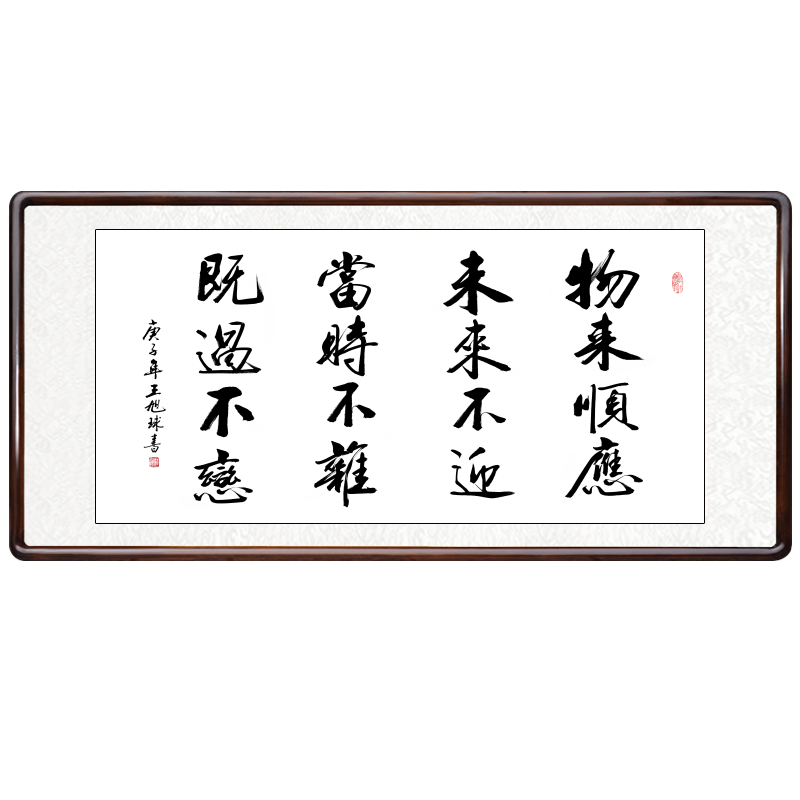 物来順應
未來不迎
當時不雜
既過不戀
庚子年王旭球書